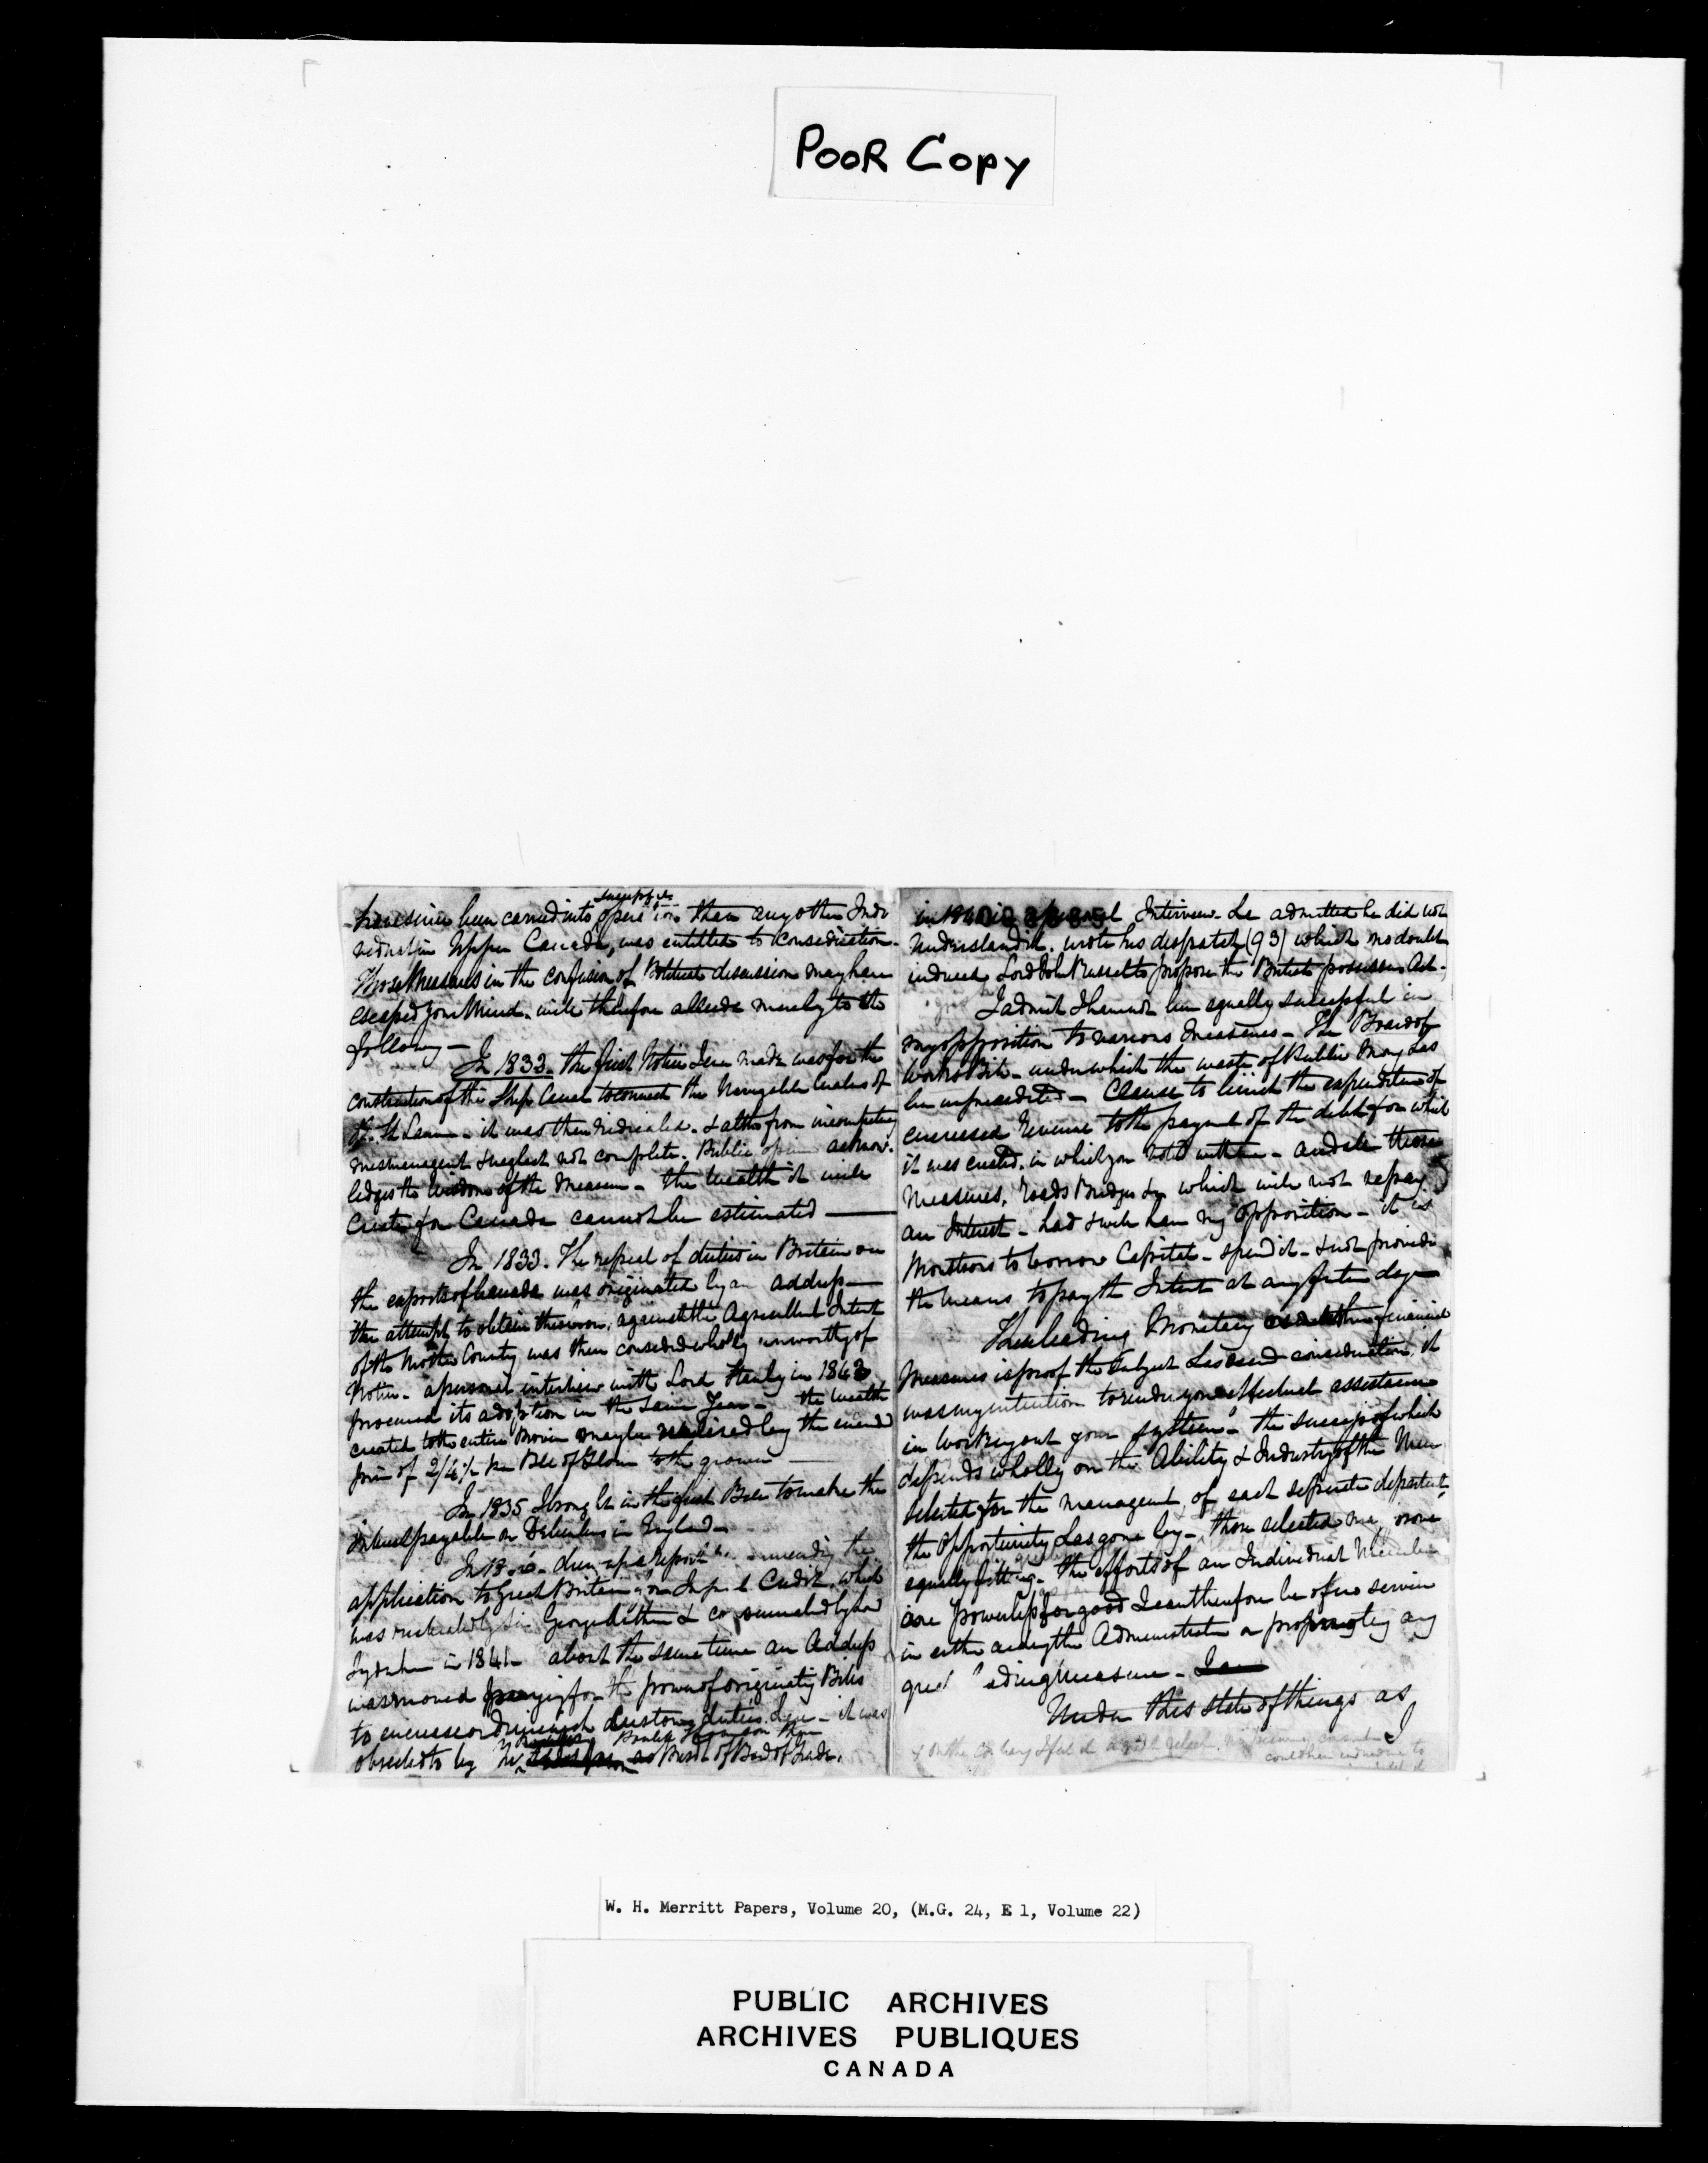 POOR COPY
have since been carried into operation than any other Indi
vidual in Upper Canada, was entitled to consideration.
Those Measures in the confusion of Political discussion may have
escaped your Mind. will therefore allude merely to the
following —
In 1833. the first Motion I ever made was for the
construction of the Ship Canal to connect the Navigable Waters of
St. it was then ridiculed. & altho from incompetency
mismanagement & neglect not complete. Public opinion acknow-
ledges the Wisdom of the Measure - the Wealth it will
Create for Canada cannot be estimated —
In 1833. The repeal of duties in Britain on
the exports of Canada was originated by an address —
the attempt to obtain against the Agricultural Interest
of the Mother Country was then considered wholly unworthy of
Notice - a personal interview with Lord Stanly in 1842
procured its adoption in the same Year - the wealth
created to the entire may be realised by the
of 2/4 of to the grower —
In 1835 I brought in the first to make the
Interest payable on in England —
In drew up a Report the
application to Great Britain for Credit. which
was by Sir George Arthur &
in 1841 - about the same time an Address
was moved praying for the power of originating Bills
to encrease or diminish Customs duties - it was
objected to by Mr Thompson then
as of Trade.
in 1840 Interview - he admitted he did not
Understand it. wrote his despatch (93) which no doubt
induced Lord John Russel to propose the British possession Act.
I admit I have not been equally successful in
my opposition to various Measures - The Board of
Works Bill - under which the waste of Public Money has
been unprecedited - Clause to limit the expenditure of
encreased Revenue to the payment of the debt for which
it was created. in which you with me - and all those
Measures. Roads Bridges &c which will not repay
an Interest - had & will have my opposition - it is
Monstrous to borrow Capital - spend it - & not provide
the means to pay the Interest at any future day —
leading Monetary financial
Measures is proof the Subject has consideration. it
was my intention to render you effectual assistance
in Working out your system" - the success of which
depends wholly on the Ability & Industry of the Men
selected for the management of each seperate department
the opportunity has gone by - those selected
equally fitting - the efforts of an Individual Member
are powerless for good I can therefore be of no service
in either the Administration or promoting any
great leading Measure -
Under this state of things as
I
W. H. Merritt Papers, Volume 20, (M.G. 24, E 1, Volume 22)
PUBLIC ARCHIVES
ARCHIVES PUBLIQUES
CANADA